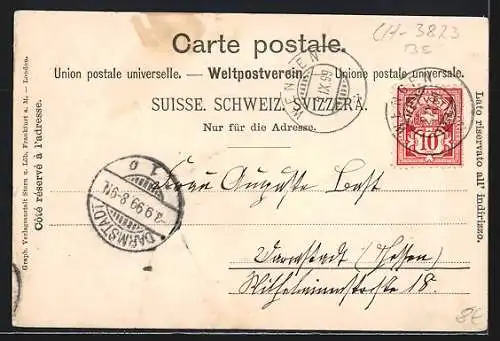 CH-3823
BE
Carte postale.
Union postale universelle. — Weltpostverein. — Unione postale universale.
SUISSE. SCHWEIZ. SVIZZERA.
Nur für die Adresse.
WENGEN
IX.99
10
Côté réservé à l'adresse.
Graph. Verlagsanstalt Stern u. Löb, Frankfurt a. M. — London.
Lato riservato all' indirizzo.
DARMSTADT
3.9.99.8-9V.
1
Frau Auguste Bast
Darmstadt (Hessen)
Wilhelminenstrasse 18.
8E